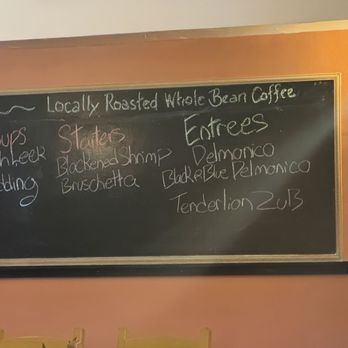 Locally Roasted Whole Bean Coffee
Starters
Blackened Shrimp
Bruschetta
Entrees
Delmonico
Black & Blue Delmonico
Tenderlion ZuB